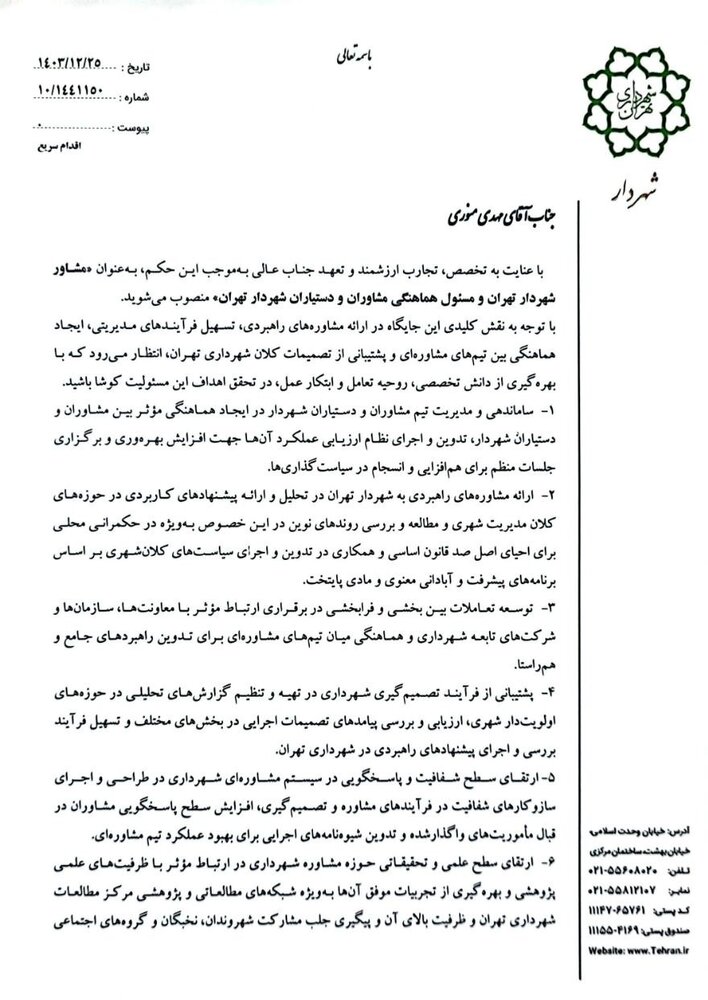 باسمه تعالی
تاریخ : ۱۴۰۳/۱۲/۲۵
شماره : ۱۰/۱۴۴۱۱۵۰
پیوست : ۰
اقدام سریع
شهرداری تهران
شهردار
جناب آقای مهدی منوری
با عنایت به تخصص، تجارب ارزشمند و تعهد جناب عالی به‌موجب این حکم، به‌عنوان «مشاور
شهردار تهران و مسئول هماهنگی مشاوران و دستیاران شهردار تهران» منصوب می‌شوید.
با توجه به نقش کلیدی این جایگاه در ارائه مشاوره‌های راهبردی، تسهیل فرآیندهای مدیریتی، ایجاد
هماهنگی بین تیم‌های مشاوره‌ای و پشتیبانی از تصمیمات کلان شهرداری تهران، انتظار می‌رود که با
بهره‌گیری از دانش تخصصی، روحیه تعامل و ابتکار عمل، در تحقق اهداف این مسئولیت کوشا باشید.
۱- ساماندهی و مدیریت تیم مشاوران و دستیاران شهردار در ایجاد هماهنگی مؤثر بین مشاوران و
دستیاران شهردار، تدوین و اجرای نظام ارزیابی عملکرد آن‌ها جهت افزایش بهره‌وری و برگزاری
جلسات منظم برای هم‌افزایی و انسجام در سیاست‌گذاری‌ها.
۲- ارائه مشاوره‌های راهبردی به شهردار تهران در تحلیل و ارائه پیشنهادهای کاربردی در حوزه‌های
کلان مدیریت شهری و مطالعه و بررسی روندهای نوین در این خصوص به‌ویژه در حکمرانی محلی
برای احیای اصل صد قانون اساسی و همکاری در تدوین و اجرای سیاست‌های کلان‌شهری بر اساس
برنامه‌های پیشرفت و آبادانی معنوی و مادی پایتخت.
۳- توسعه تعاملات بین بخشی و فرابخشی در برقراری ارتباط مؤثر با معاونت‌ها، سازمان‌ها و
شرکت‌های تابعه شهرداری و هماهنگی میان تیم‌های مشاوره‌ای برای تدوین راهبردهای جامع و
هم‌راستا.
۴- پشتیبانی از فرآیند تصمیم‌گیری شهرداری در تهیه و تنظیم گزارش‌های تحلیلی در حوزه‌های
اولویت‌دار شهری، ارزیابی و بررسی پیامدهای تصمیمات اجرایی در بخش‌های مختلف و تسهیل فرآیند
بررسی و اجرای پیشنهادهای راهبردی در شهرداری تهران.
۵- ارتقای سطح شفافیت و پاسخگویی در سیستم مشاوره‌ای شهرداری در طراحی و اجرای
سازوکارهای شفافیت در فرآیندهای مشاوره و تصمیم‌گیری، افزایش سطح پاسخگویی مشاوران در
قبال مأموریت‌های واگذارشده و تدوین شیوه‌نامه‌های اجرایی برای بهبود عملکرد تیم مشاوره‌ای.
۶- ارتقای سطح علمی و تحقیقاتی حوزه مشاوره شهرداری در ارتباط مؤثر با ظرفیت‌های علمی
پژوهشی و بهره‌گیری از تجربیات موفق آن‌ها به‌ویژه شبکه‌های مطالعاتی و پژوهشی مرکز مطالعات
شهرداری تهران و ظرفیت بالای آن و پیگیری جلب مشارکت شهروندان، نخبگان و گروه‌های اجتماعی
آدرس: خیابان وحدت اسلامی،
خیابان بهشت، ساختمان مرکزی
تلفن: ۰۲۱-۵۵۶۰۸۰۲۰
نمابر: ۰۲۱-۵۵۸۱۲۱۰۷
کد پستی: ۱۱۱۴۷-۶۵۷۶۱
صندوق پستی: ۱۱۱۵۵-۴۱۶۹
Website: www.Tehran.ir